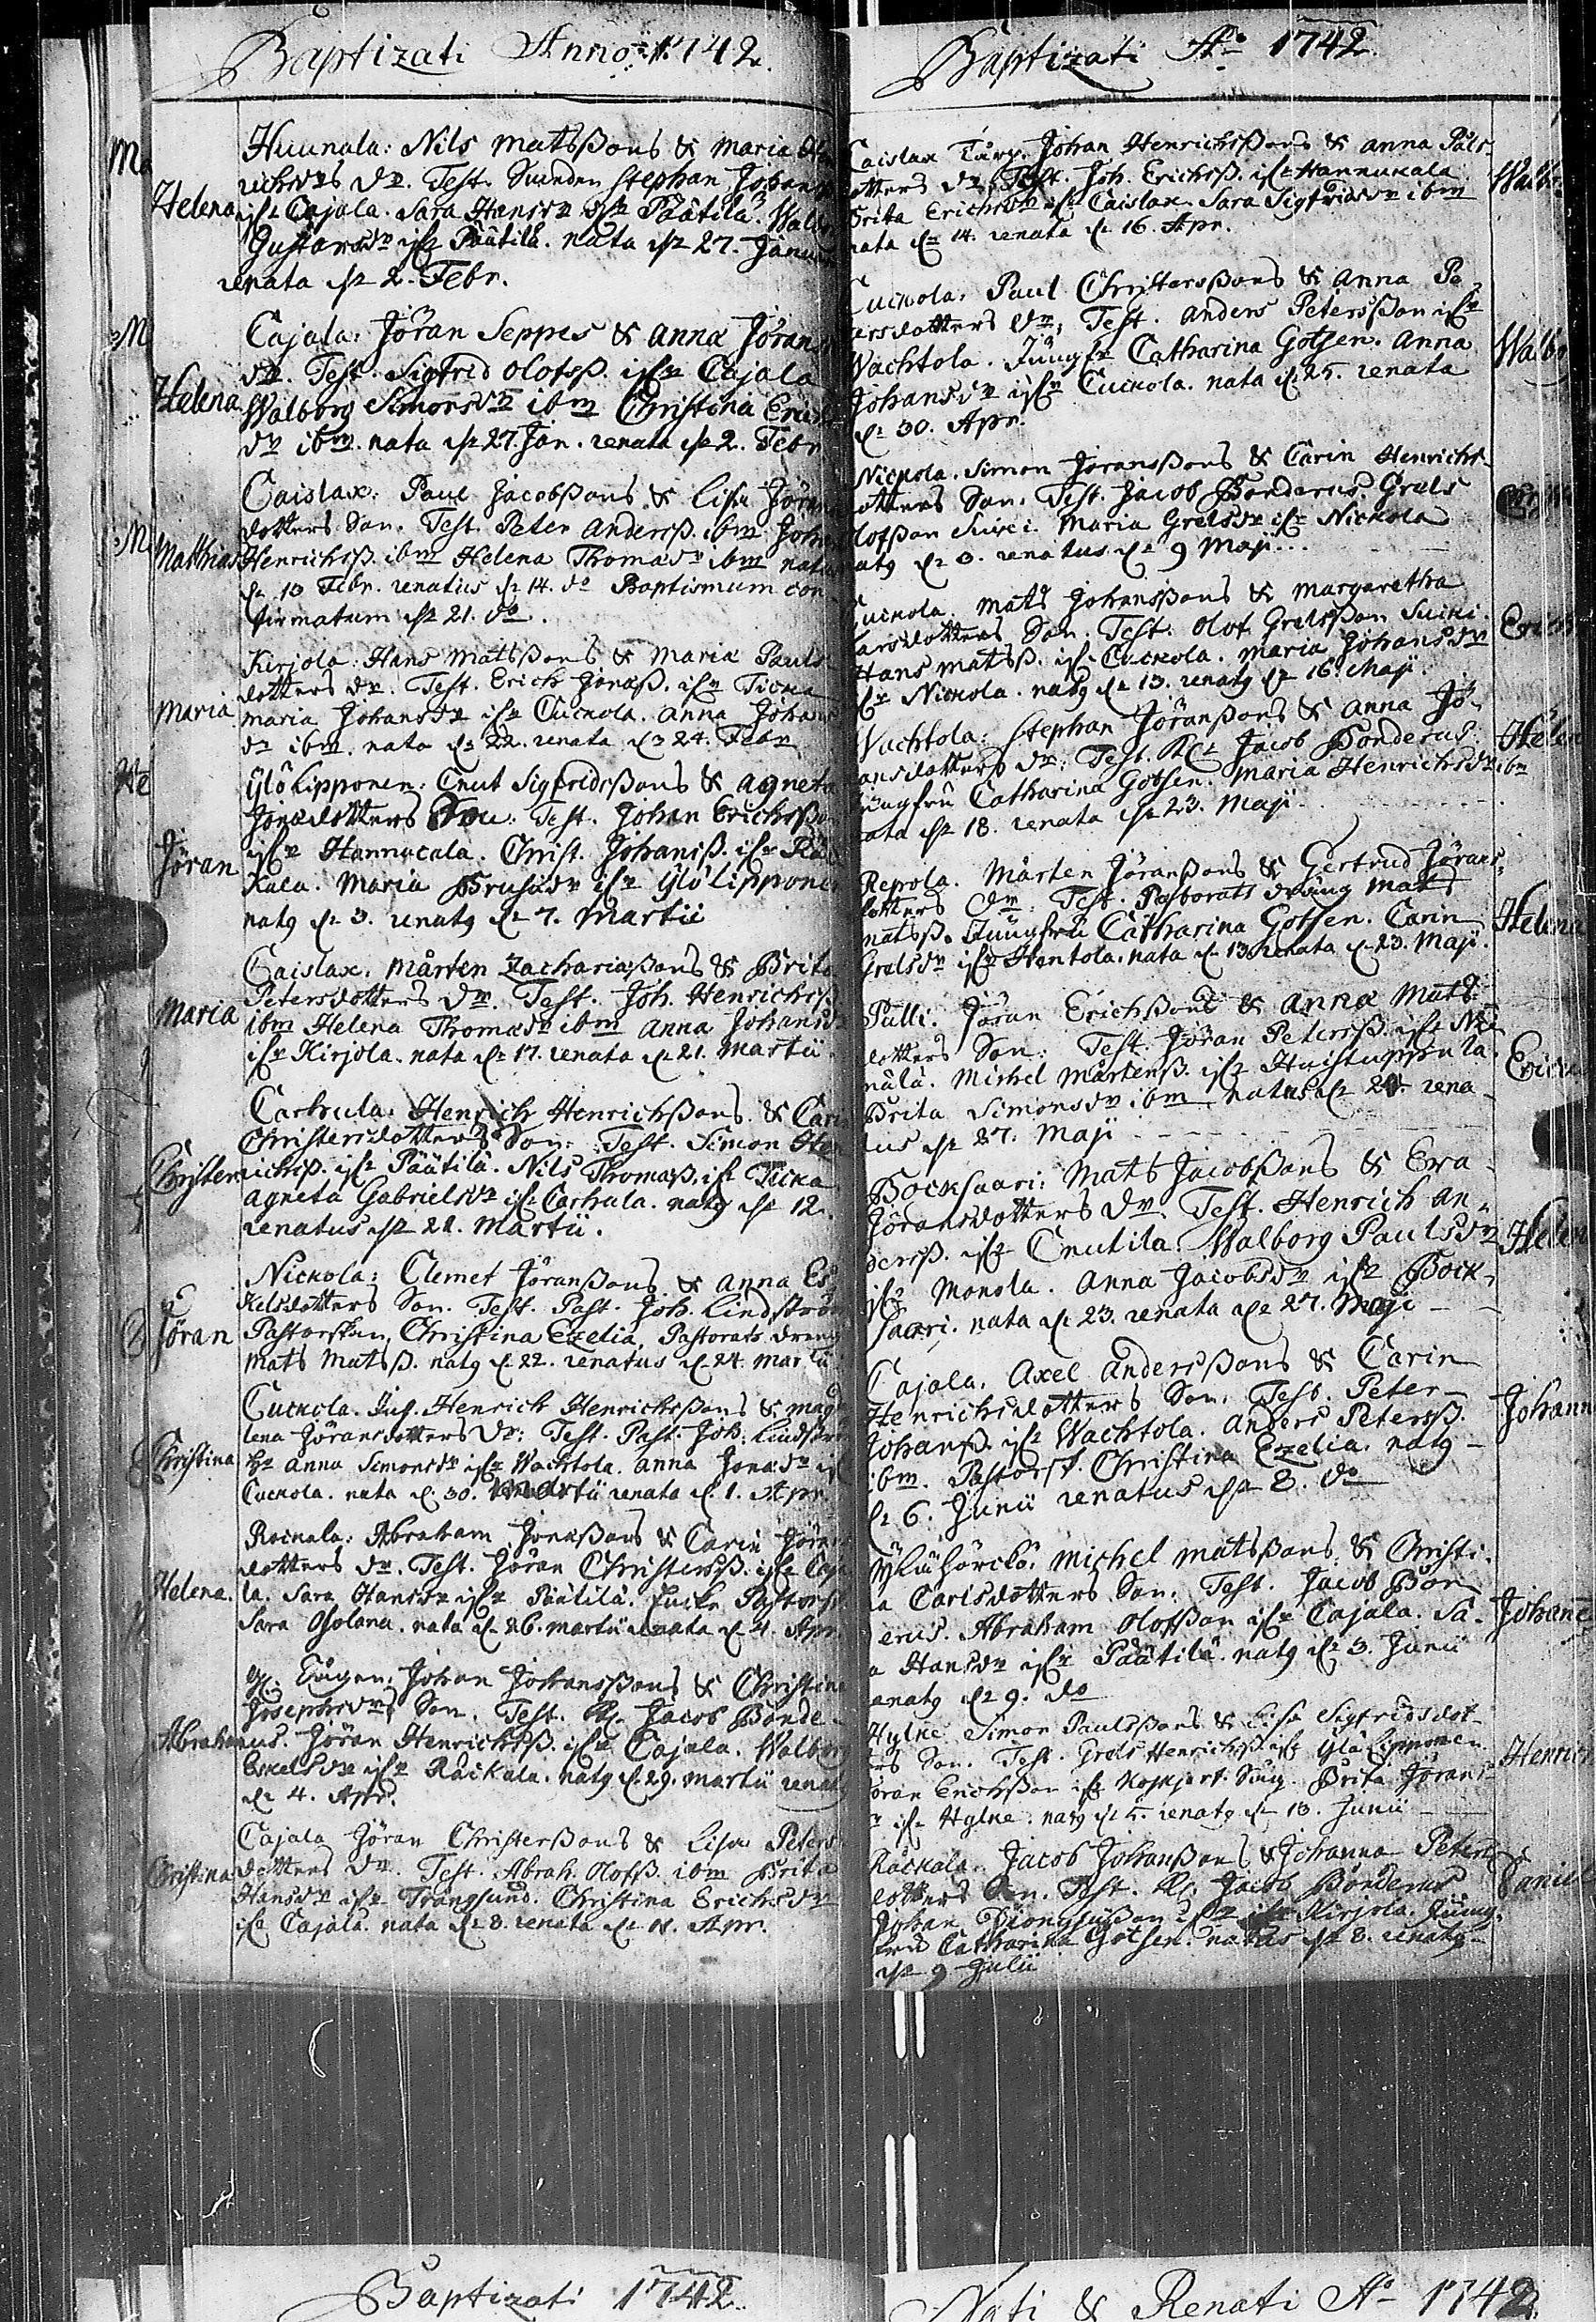 Baptizati Anno 1742.
Huunala: Nils Matsßons & Maria
richsdrs dr. Test. Suenden Stephan Johans
Helena ifr Cajala. Sara Hansdr ifr Päätilä. Walb
Gustavsdr ifr Päätilä. nata d. 27. Janua
renata d. 2. Febr.
Cajala: Jöran Seppes & Anna Jörans
dr. Test. Sigfrid Olofsß. ifr Cajala
Helena Walborg Simonsdr ibm Christina Erichs
dr ibm. nata d. 27. Jan. renata d. 2. Febr
Caislax: Paul Jacobßons & Lisa Jörans
dotters Son. Test. Peter Andersß. ibm Johan
Matthias Henrichsß. ibm Helena Thomadr ibm natus
d. 13 Febr. renatus d. 14. do Baptismum con
firmatum d. 21. do.
Kirjola: Hans Matsßons & Maria Pauls
dotters dr. Test. Erich Jonæß. ifr Ticka
Maria Maria Johansdr ifr Cuckola. Anna Johans
dr ibm. nata d. 22. renata d. 24. Febr
Ylölipponen: Cnut Sigfridsßons & Agneta
Jonædotters Son: Test. Johan Erichsßo
Jöran ifr Hannucala. Christ. Johansß. ifr Räc
kala. Maria Brusiidr ifr Ylölippone
natg d. 3. renatg d. 7. Martii
Caislax. Mårten Zachariæßons & Brita
Petersdotters dr. Test. Joh. Henrichsß.
Maria ibm Helena Thomædr ibm Anna Johansdr
ifr Kirjola. nata d. 17. renata d. 21. Martii
Carhula: Henrich Henrichßons & Carin
Christersdotters Son: Test. Simon Hen
Christer richsß. ifr Päätilä. Nils Thomæß. ifr Ticka
Agneta Gabrielsdr ifr Carhula. natg d. 12.
renatus d. 21. Martii.
Nickola: Clemet Jöranßons & Anna Es
kelsdotters Son. Test. Past. Joh. Lindström
Jöran Pastorskan Christina Ezelia, Pastorats dreng
Mats Matsß. natg d. 22. renatus d. 24. Martii
Cuckola. Inh. Henrich Henrichsßons & Magd
lena Jöransdotters dr: Test. Past. Joh: Lindströ
Christina hr Anna Simonsdr ifr Wachtola. Anna Jonædr if
Cuckola. nata d. 30. Martii renata d. 1. Apr.
Rocnala: Abraham Jonæßons & Carin Jörans
dotters dr. Test. Jöran Christersß. ifr Caja
Helena. la. Sara Hansdr ifr Päätilä. Pastorsk
Sara Osolana. nata d. 26. Martii renata d. 4. Apr
Johan Johansßons & Christina
Josephsdrs Son. Test. Kl. Jacob Bonde
Abraham rus. Jöran Henrichsß. ifr Cajala. Walborg
Eskelsdr ifr Räckala. natg d. 29. Martii renat
d. 4. Apr.
Cajala Jöran Christersßons & Lisa Peters
Christina dotters dr. Test. Abrah. Olofsß. ibm Brita
Hansdr ifr Trångsund. Christina Erichsdr
ifr Cajala. nata d. 8. renata d. 11. Apr.
Baptizati Ao 1742
Caislax Tårp. Johan Henrichsßons & Anna Påls
otters dr. Test. Joh. Erichsß. ifr Hannukala Walb
Brita Erichsdr ifr Caislax. Sara Sigfridsdr ibm
nata d. 14. renata d. 16. Apr.
Cuckola. Paul Christersßons & Anna Pe
ersdotters dr, Test. Anders Petersßon ifr
Wachtola. Jungfr Catharina Gotsen. Anna Walbo
Johansdr ifr Cuckola. nata d. 25. renata
d. 30. Apr.
Nickola. Simon Jöransßons & Carin Henrichs
otters Son. Test. Jacob Bonderus. Grels
lofsßon Suxei. Maria Grelsdr ifr Nickola
atg d. 8. renatus d. 9 Maji
Cuckola. Mats Johansßons & Margaretha
arsdotters Son. Test. Olof Grelsßon Suixi. Erich
Hans Matsß. ifr Cuckola. Maria Johansdr
ifr Nickola. natg d. 13. renatg d. 16. Maji.
Wachtola: Stephan Jöranßons & Anna Jö
ansdotters dr: Test. Kl. Jacob Bonderus. Helen
Jungfru Catharina Gotsen. Maria Henrichsdr ibm
ata d. 18. renata d. 23. Maji
Repola. Mårten Jöranßons & Gertrud Jörans
dotters dr: Test. Pastorats dräng Mats
Matsß. Jungfru Catharina Gotsen. Carin Helena
Grelsdr ifr Hentola. nata d. 13 renata d. 23. Maji.
Pulli. Jöran Erichsßons & Anna Mats
dotters Son: Test. Jöran Petersß. ifr Nie
mälä. Michel Mårtensß. ifr Huistuppula. Ericu
Brita Simonsdr ibm natus d. 24. rena
tus d. 27. Maji
Bocksaari: Mats Jacobßons & Ewa
Jöransdotters dr. Test. Henrich An
dersß. ifr Cnutila. Walborg Paulsdr Helen
ifr Monola. Anna Jacobsdr ifr Bock
saari. nata d. 23. renata d. 27. Maji
Cajala. Axel Andersßons & Carin
Henrichsdotters Son. Test. Peter
Johansß. ifr Wachtola. Anders Petersß. Johann
ibm. Pastorsk. Christina Ezelia. natg
d. 6. Junii renatus d. 8. do
Wjkähörckö. Michel Matsßons & Christi
a Carlsdotters Son. Test. Jacob Bon
erus. Abraham Olofsßon ifr Cajala. Sa Johanne
a Hansdr ifr Päätilä. natg d. 3. Junii
enatg d. 9. do
Hylke Simon Paulsßons & Lisa Sigfridsdot
ers Son. Test. Grels Henrichsß. ifr Ylälipponen. Henric
öran Erichsßon ifr Brita Jörans
ifr Hylke. natg d. 5. renatg d. 13. Junii
Räckala. Jacob Johanßons & Johanna Peters
dotters Son. Test. Kl. Jacob Bonderus Daniel
Johan Dionysiißon ifr Kirjola. Jung
fru Catharina Gotsen. natus d. 8. renatg
d. 9 Julii
Baptizati 1742.
Nati & Renati Ao 1742